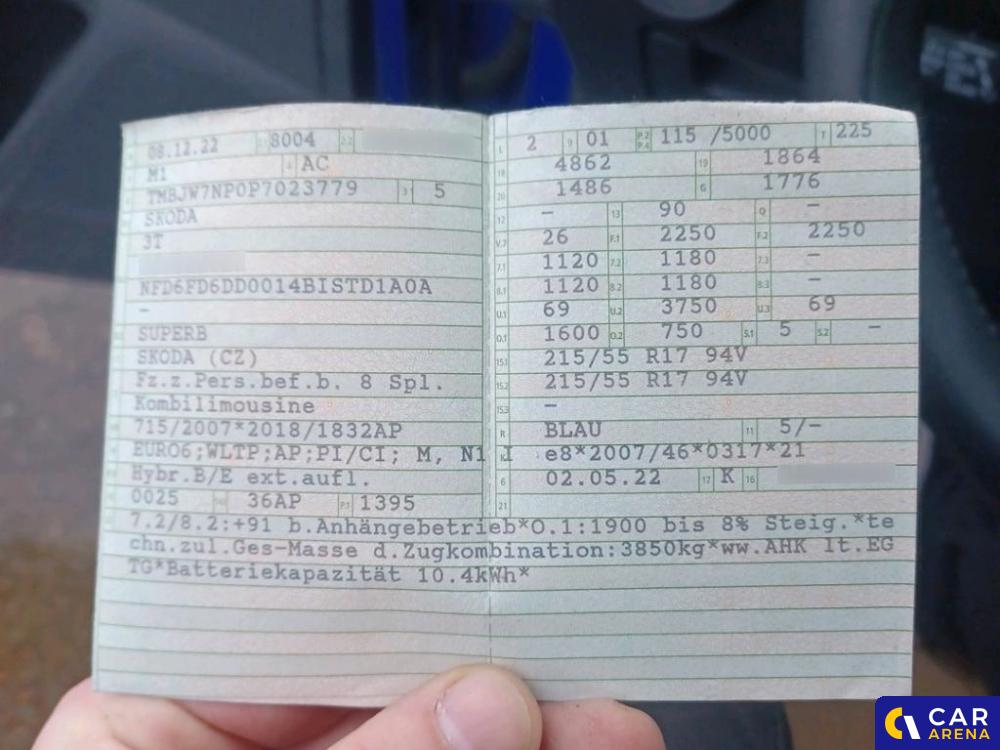 08.12.22 2.1 8004 2.2
M1 4 AC
TMBJW7NP0P7023779 3 5
SKODA
3T
NFD6FD6DD0014BISTD1A0A
–
SUPERB
SKODA (CZ)
Fz.z.Pers.bef.b. 8 Spl.
Kombilimousine
715/2007*2018/1832AP
EURO6;WLTP;AP;PI/CI; M, N1 I
Hybr.B/E ext.aufl.
0025 36AP P.1 1395
L 2 9 01 P.2 P.4 115 /5000 T 225
18 4862 19 1864
20 1486 G 1776
12 – 13 90 Q –
V.7 26 F.1 2250 F.2 2250
7.1 1120 7.2 1180 7.3 –
8.1 1120 8.2 1180 8.3 –
U.1 69 U.2 3750 U.3 69
O.1 1600 O.2 750 S.1 5 S.2 –
15.1 215/55 R17 94V
15.2 215/55 R17 94V
15.3 –
R BLAU 11 5/–
K e8*2007/46*0317*21
6 02.05.22 17 K 16
21
7.2/8.2:+91 b.Anhängebetrieb*O.1:1900 bis 8% Steig.*te
chn.zul.Ges-Masse d.Zugkombination:3850kg*ww.AHK lt.EG
TG*Batteriekapazität 10.4kWh*
CAR
ARENA